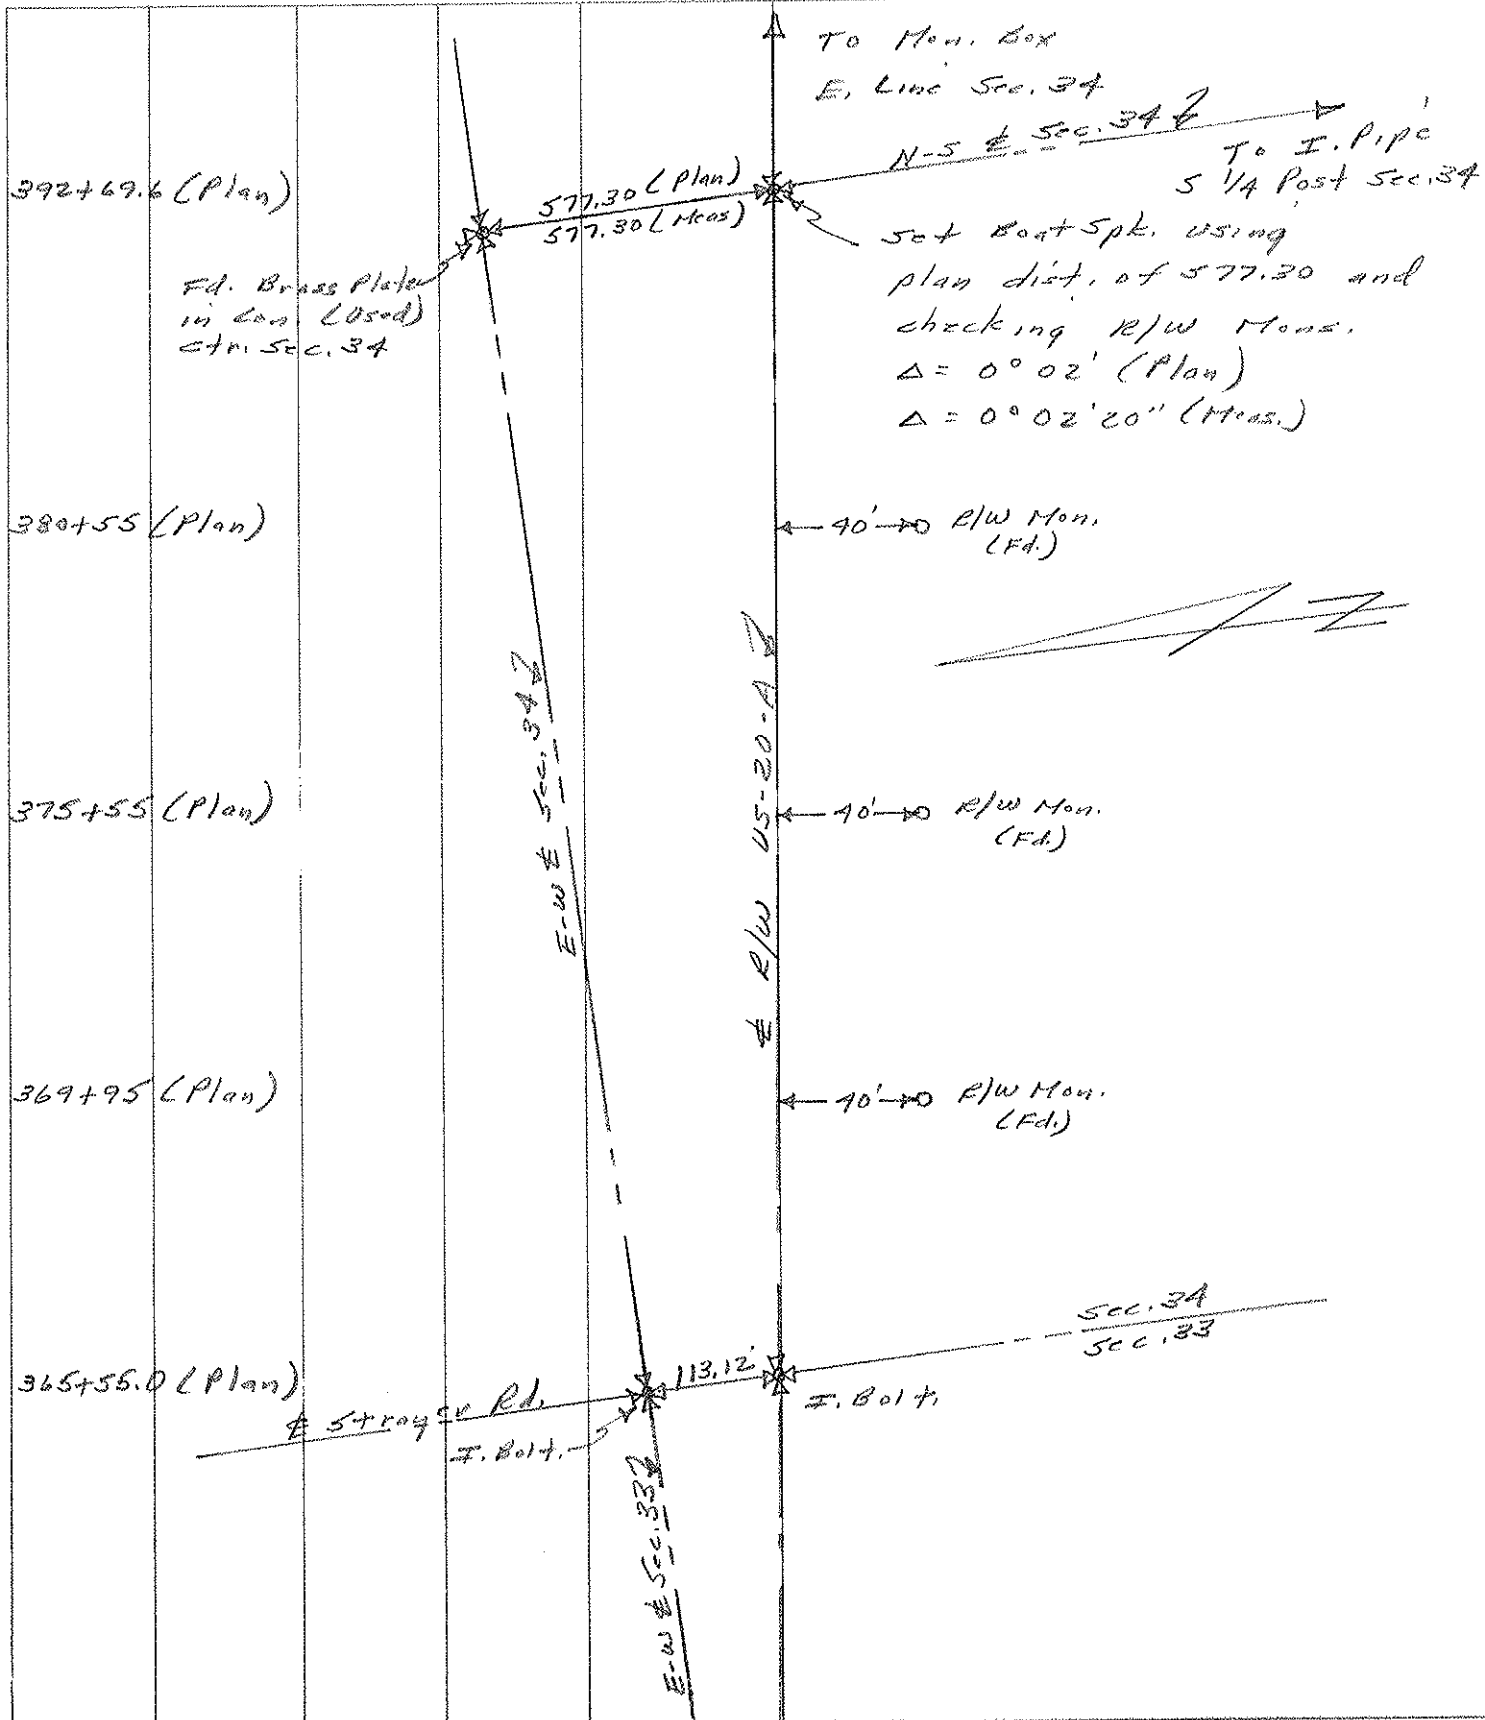 To Mon. Box
E. Line Sec. 34
N-S ℄ Sec. 34
To I. Pipe
S 1/4 Post Sec. 34
392+69.6 (Plan)
577.30 (Plan)
577.30 (Meas)
Fd. Brass Plate
in Con. (Used)
Ctr. Sec. 34
Set Boat Spk. using
plan dist. of 577.30 and
checking R/W Mons.
Δ = 0° 02' (Plan)
Δ = 0° 02' 20" (Meas.)
380+55 (Plan)
40' R/W Mon.
(Fd.)
N
E-W ℄ Sec. 34
℄ R/W US-20-A
375+55 (Plan)
40' R/W Mon.
(Fd.)
369+95 (Plan)
40' R/W Mon.
(Fd.)
Sec. 34
Sec. 33
365+55.0 (Plan)
113.12'
℄ Strayer Rd.
I. Bolt.
I. Bolt.
E-W ℄ Sec. 33